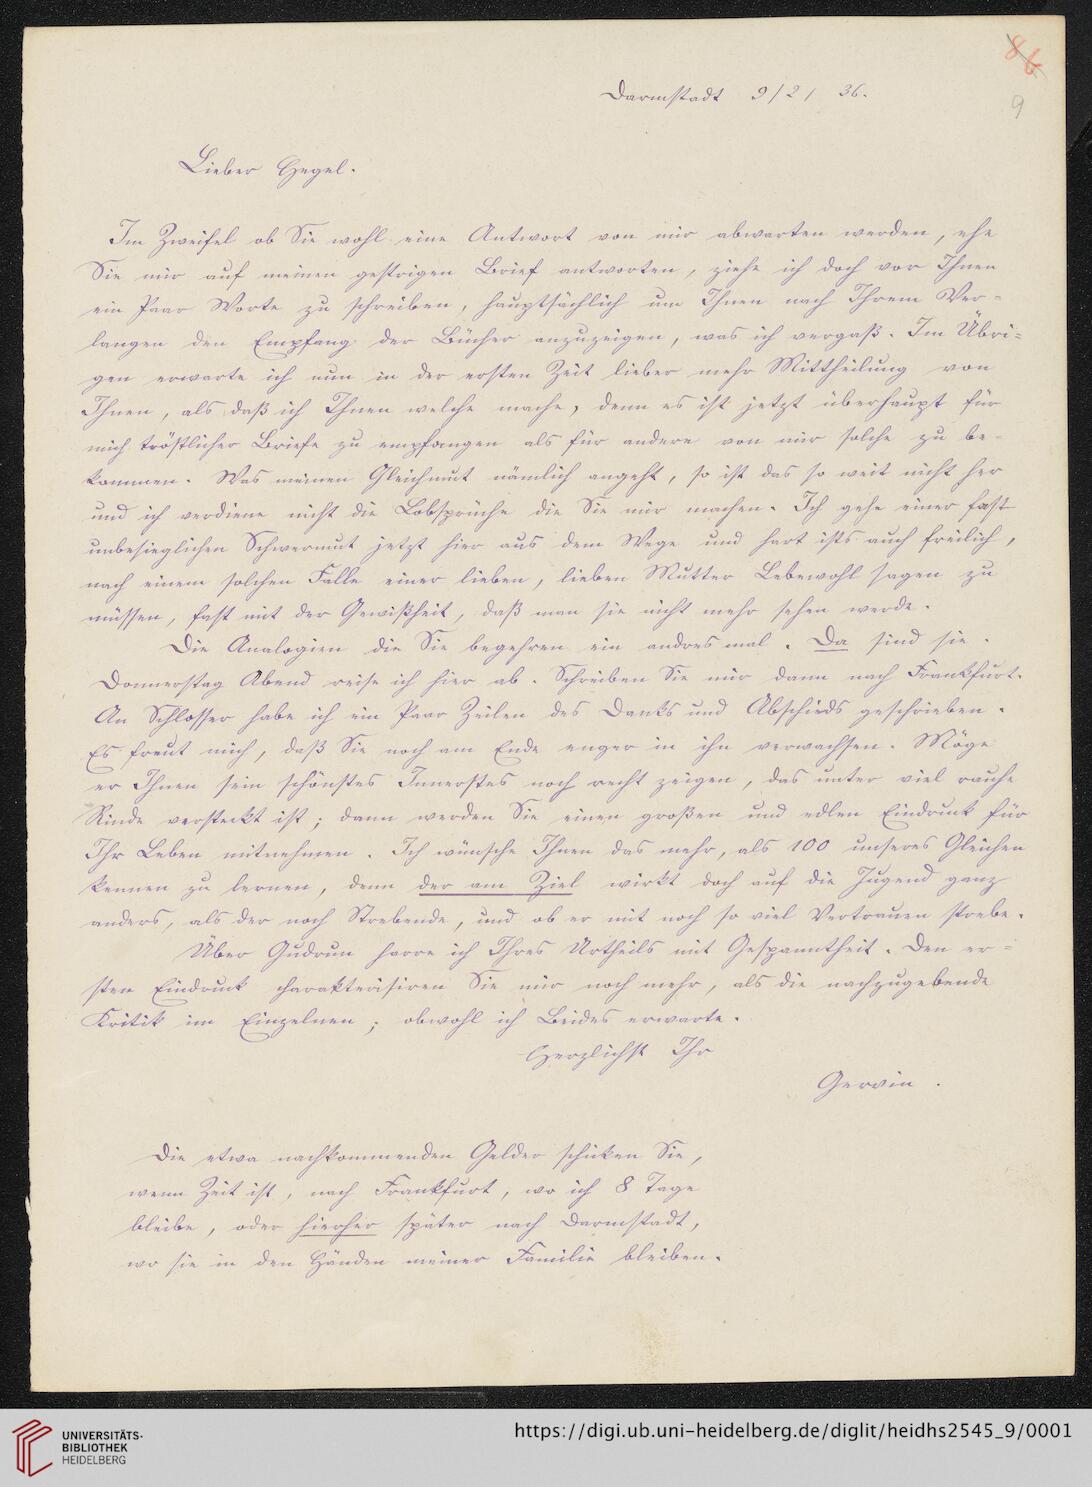 86
9
Darmstadt 9/2/ 36.
Lieber Hegel.
Im Zweifel ob Sie wohl eine Antwort von mir abwarten werden, ehe
Sie mir auf meinen gestrigen Brief antworten, ziehe ich doch vor Ihnen
ein Paar Worte zu schreiben, hauptsächlich um Ihnen nach Ihrem Ver-
langen den Empfang der Bücher anzuzeigen, was ich vergaß. Im Übri-
gen erwarte ich nun in der ersten Zeit lieber mehr Mittheilung von
Ihnen, als daß ich Ihnen welche mache, denn es ist jetzt überhaupt für
mich tröstlicher Briefe zu empfangen als für andere von mir solche zu be-
kommen. Was meinen Gleichmut nämlich angeht, so ist das so weit nicht her
und ich verdiene nicht die Lobsprüche die Sie mir machen. Ich gehe einer fast
unbesieglichen Schwermut jetzt hier aus dem Wege und hart ists auch freilich,
nach einem solchen Falle einer lieben, lieben Mutter Lebewohl sagen zu
müssen, fast mit der Gewißheit, daß man sie nicht mehr sehen werde.
Die Analogien die Sie begehren ein andres mal. Da sind sie.
Donnerstag Abend reise ich hier ab. Schreiben Sie mir dann nach Frankfurt.
An Schlosser habe ich ein Paar Zeilen des Danks und Abschieds geschrieben.
Es freut mich, daß Sie noch am Ende enger in ihn verwachsen. Möge
er Ihnen sein schönstes Innerstes noch recht zeigen, das unter viel rauhe
Rinde versteckt ist; dann werden Sie einen großen und edlen Eindruck für
Ihr Leben mitnehmen. Ich wünsche Ihnen das mehr, als 100 unseres Gleichen
kennen zu lernen, denn der am Ziel wirkt doch auf die Jugend ganz
anders, als der noch Strebende, und ob er mit noch so viel Vertrauen strebe.
Über Gudrun harre ich Ihres Urtheils mit Gespanntheit. Den er-
sten Eindruck charakterisiren Sie mir noch mehr, als die nachzugebende
Kritik im Einzelnen; obwohl ich Beides erwarte.
Herzlichst Ihr
Gervin.
Die etwa nachkommenden Gelder schicken Sie,
wenn Zeit ist, nach Frankfurt, wo ich 8 Tage
bleibe, oder hierher später nach Darmstadt,
wo sie in den Händen meiner Familie bleiben.
UNIVERSITÄTS-
BIBLIOTHEK
HEIDELBERG
https://digi.ub.uni-heidelberg.de/diglit/heidhs2545_9/0001